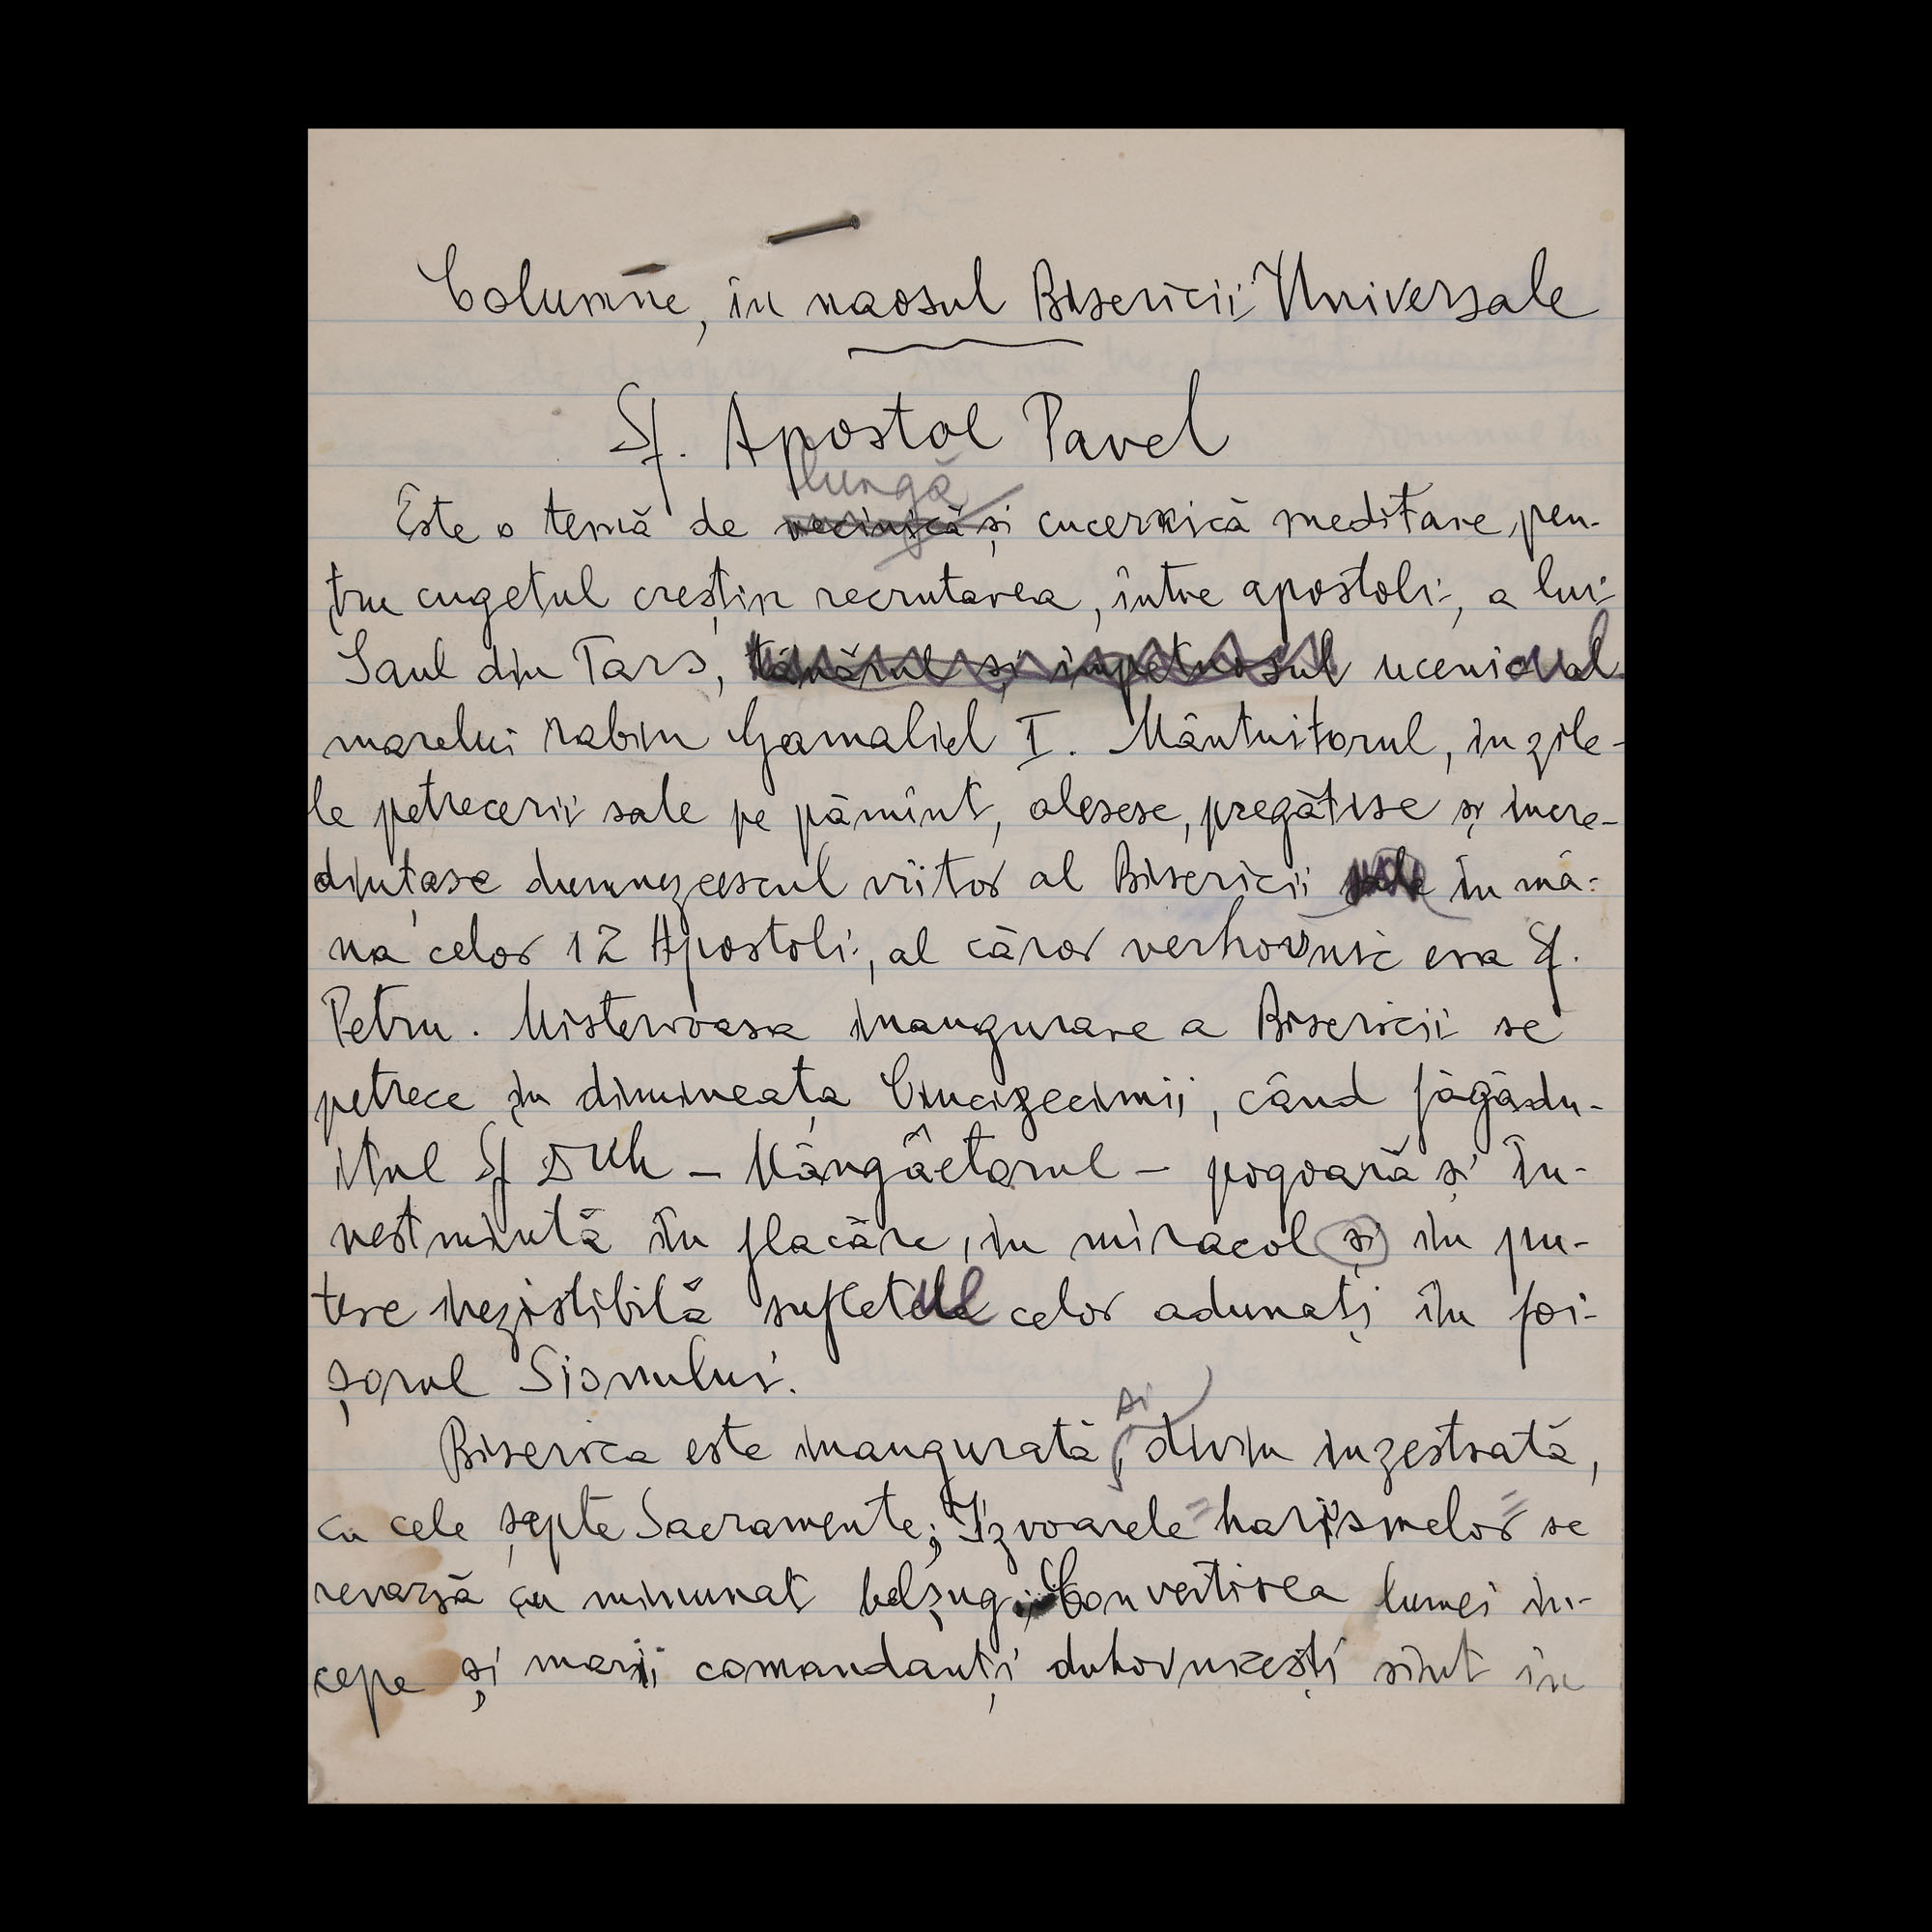 Columne, în naosul Bisericii Universale
Sf. Apostol Pavel
lungă
Este o temă de vecinică și cucernică meditare, pen-
tru cugetul creștin recrutarea, între apostoli, a lui
Saul din Tars, tânărul și impetuosul ucenicul al
marelui rabin Gamaliel I. Mântuitorul, în zile-
le petrecerii sale pe pământ, alesese, pregătise și încre-
dințase dumnezeescul viitor al Bisericii sale în mâ-
na celor 12 Apostoli, al căror verhovnic era Sf.
Petru. Misterioasa inaugurare a Bisericii se
petrece în dimineața Cincizecimii, când făgădu-
itul Sf Duh – Mângâetorul – pogoară și în-
vestmintă în flacăre, în miracol și în pu-
tere irezistibilă sufletele celor adunați în foi-
șorul Sionului.
și
Biserica este inaugurată, divin înzestrată,
cu cele șapte Sacramente; Izvoarele harismelor se
revarsă cu minunat belșug; Convertirea lumei în-
cepe și marii comandanți duhovnicești sînt în